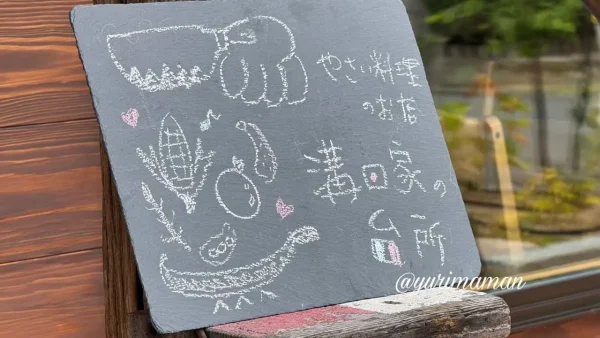 やさい料理
のお店
溝口家の
台所
@yurimaman